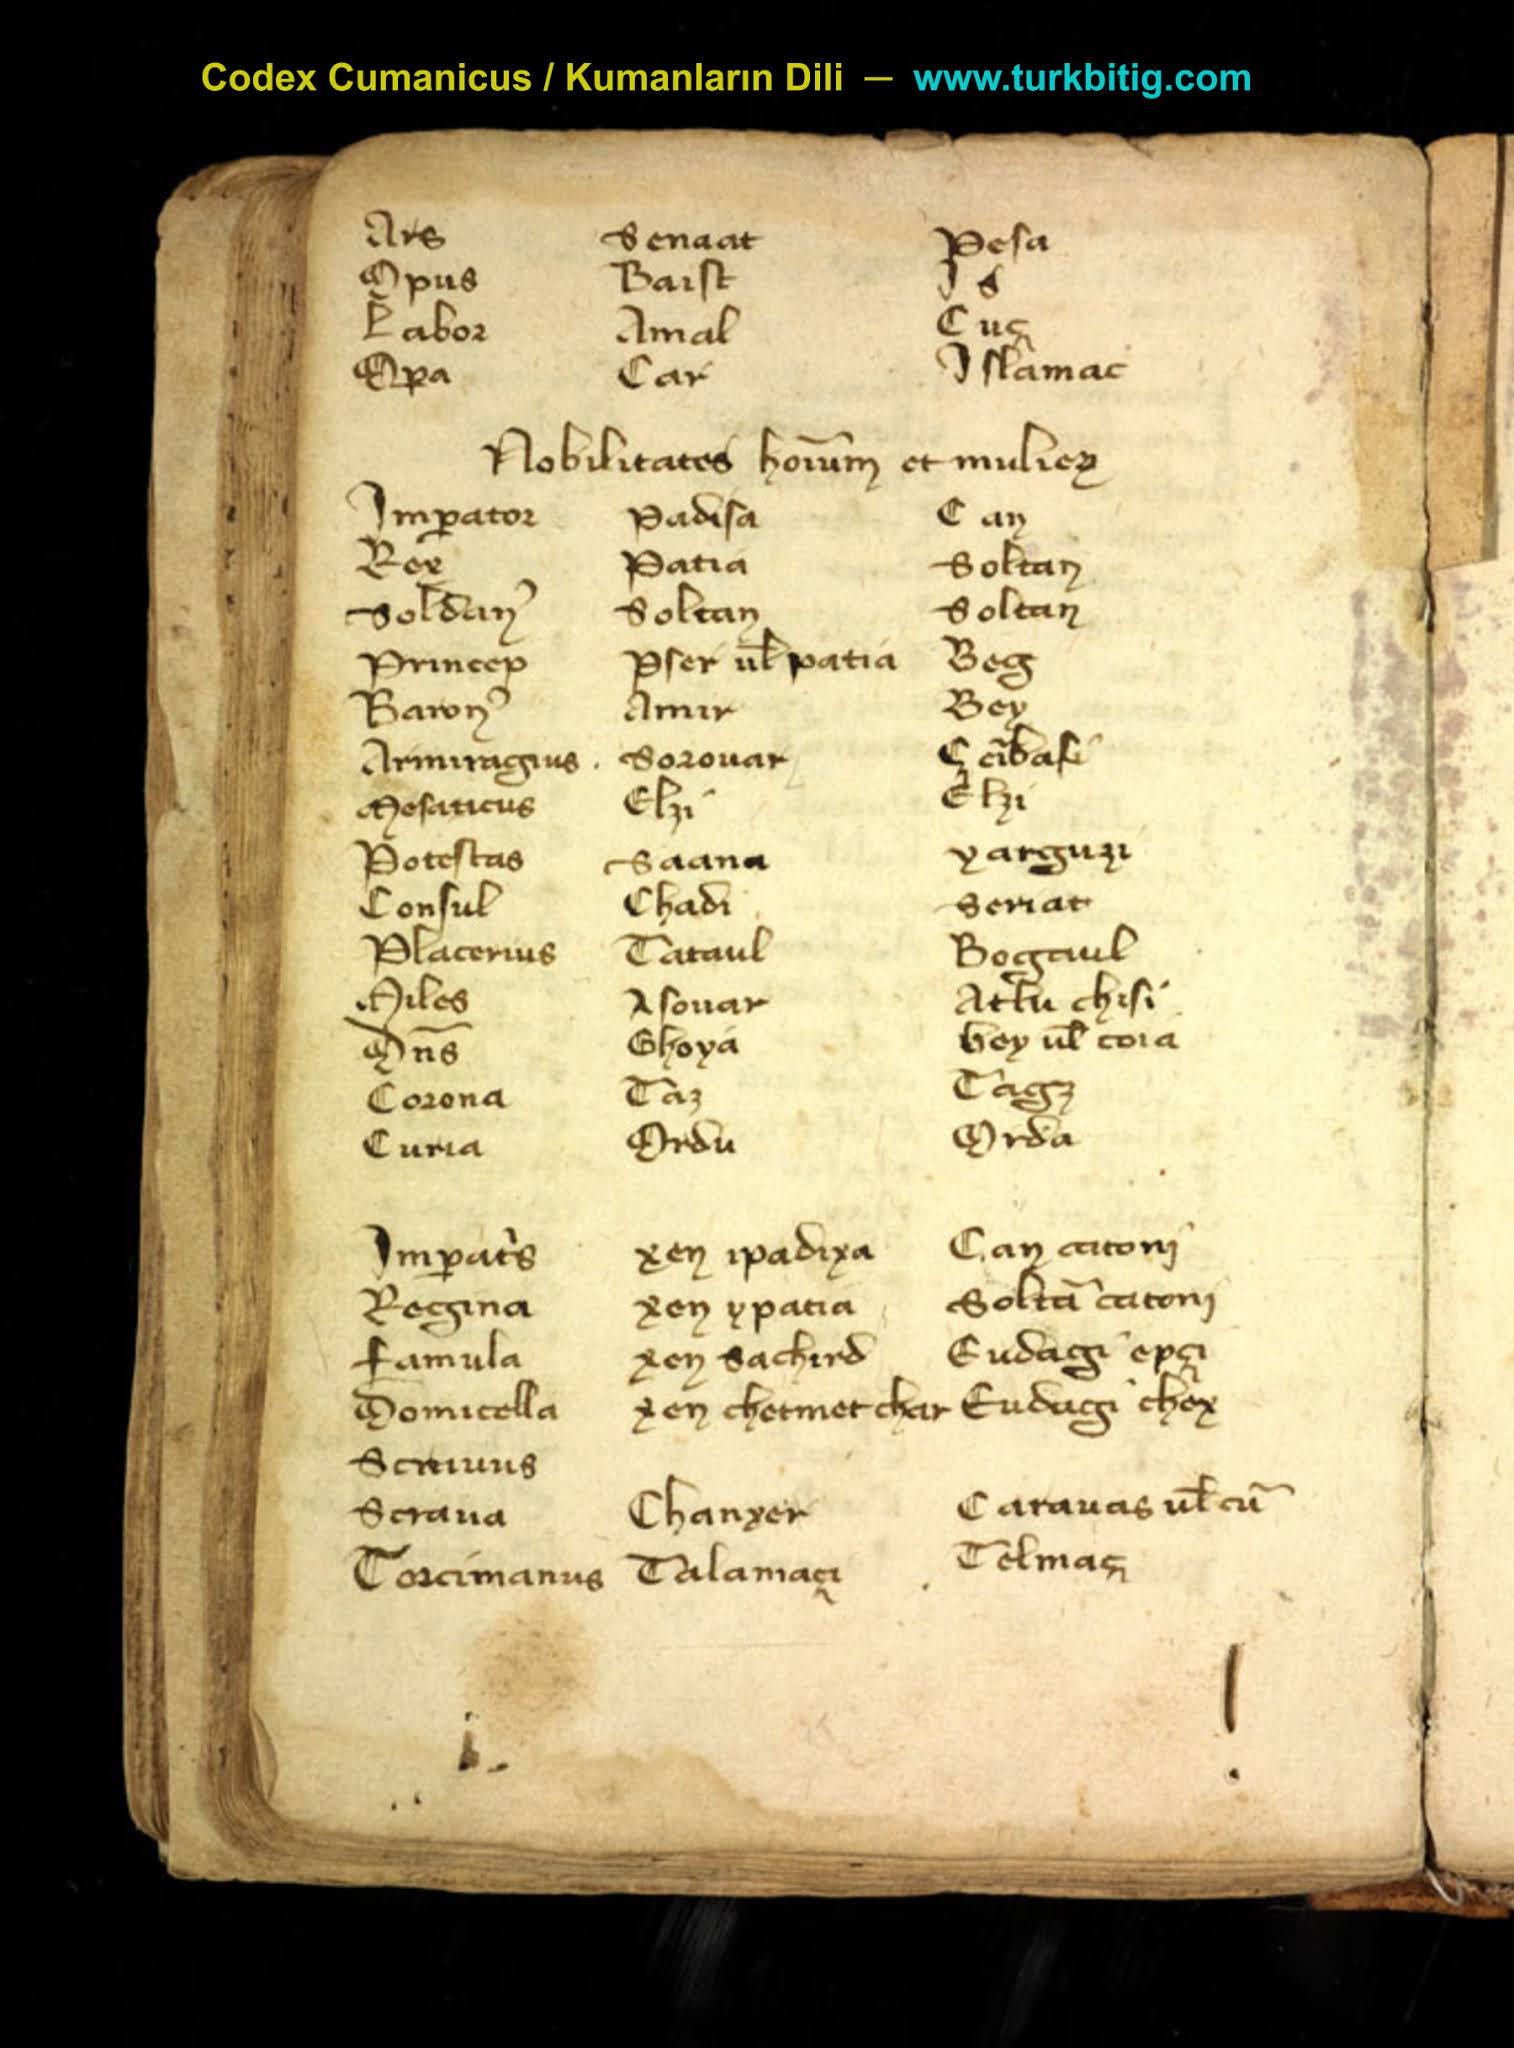 Codex Cumanicus / Kumanların Dili — www.turkbitig.com
Ars Senaat Pesa
Opus Baist Is
Labor Amal Cuç
Opa Car Islamac
Nobilitates hoium et mulieꝝ
Impator Padisa Can
Rex Patia Soltan
Soldan Soltan Soltan
Princep Pser ul patia Beg
Baron Amir Bey
Armiragius. Sorouar Çcibasi
Mesaticus Elzi Elzi
Potestas Saana yarguzi
Consul Chadi Seriat
Placerius Tataul Bogaul
Miles Asouar Atlu chisi
Dns Ghoya bey ul coia
Corona Taz Tagz
Curia Ordu Orda
Impats xen ipadixa Can catoni
Regina xen ypatia Soltā catoni
Famula xen Sachird Eudagi epçi
Domicella xen chetmet char Eudagi chex
Scrauus
Scraua Chanxer Carauas ul cū
Torcimanus Talamaçi Telmaç